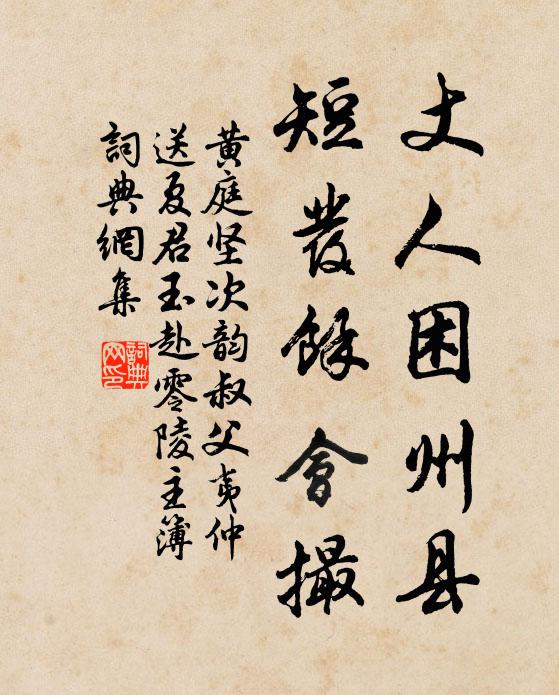 丈人困州县
短发餘會撮
黄庭坚次韵叔父夷仲
送夏君玉赴零陵主簿
詞典網集
詞典網印